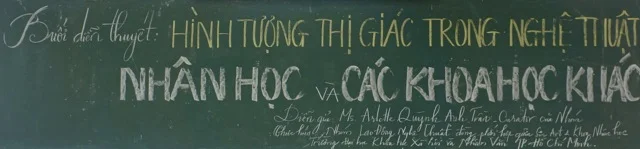 Buổi diễn thuyết: HÌNH TƯỢNG THỊ GIÁC TRONG NGHỆ THUẬT
NHÂN HỌC VÀ CÁC KHOA HỌC KHÁC
Diễn giả: Ms. Arlette Quỳnh Anh Trần. Curator của Nhóm
Lao Động Nghệ Thuật đồng phối hợp giữa Art & Khoa Nhân học
Trường Đại học Khoa học Xã hội và Nhân Văn TP. Hồ Chí Minh.